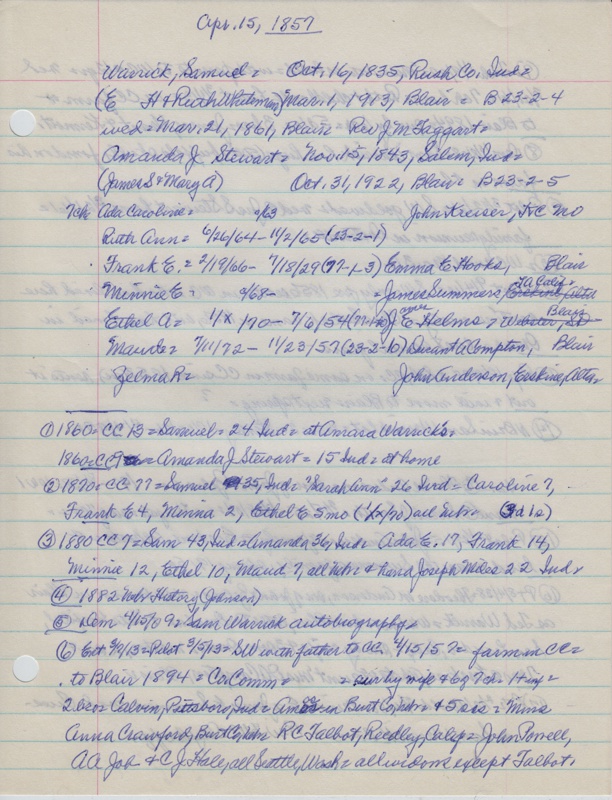 Apr. 15, 1857
Warrick, Samuel = Oct. 16, 1835, Rush Co. Ind =
(E H & Ruth Whitman) Mar. 1, 1913, Blair = B 23-2-4
wed = Mar. 21, 1861, Blair = Rev J. M. Taggart =
Amanda J Stewart = Nov. 15, 1843, Salem, Ind =
(James S & Mary A) Oct. 31, 1922, Blair = B 23-2-5
7ch Ada Caroline = /63 John Kreiser, KC MO
Ruth Ann = 6/26/64 - 11/2/65 (23-2-1)
Frank E. = 2/19/66 - 7/18/29 (77-1-3) Emma E Hooks, Blair
Minnie E = /68 - = James Summers, Calif =
Ethel A = 1/x/70 - 7/6/54 James E Helms = Blair
Maude = 7/11/72 - 11/23/57 (23-2-10) Durant A Compton, Blair
Zelma R = John Anderson, Erskine, Alta =
① 1860 = CC 13 = Samuel = 24 Ind = at Amasa Warrick's =
1860 = CC 9 = Amanda J Stewart = 15 Ind = at home
② 1870 = CC 77 = Samuel 35, Ind = "Sarah Ann" 26 Ind = Caroline 7,
Frank E 4, Minna 2, Ethel E 5 mo (1/x/70) all Nebr = (3d 1s)
③ 1880 CC 7 = Sam 43, Ind = Amanda 36, Ind = Ada E. 17, Frank 14,
Minnie 12, Ethel 10, Maud 7, all Nebr & hand Joseph Miles 22 Ind =
④ 1882 Nebr History (Johnson)
⑤ Dem 4/15/09 = Sam Warrick autobiography =
⑥ Ent 3/8/13 = Pilot 3/5/13 = SW with father to CC 4/15/57 = farm in CC =
to Blair 1894 = Co. Comm = = sur by wife & 6 of 7 ch = 1 Hay =
2 bro = Calvin, Pittsboro, Ind = Burt Co, Nebr = & 5 sis = Mmes
Anna Crawford, Burt Co, Nebr = R C Talbot, Reedley, Calif = John Powell,
A A Job & C J Hale, all Seattle, Wash = all widows except Talbot.